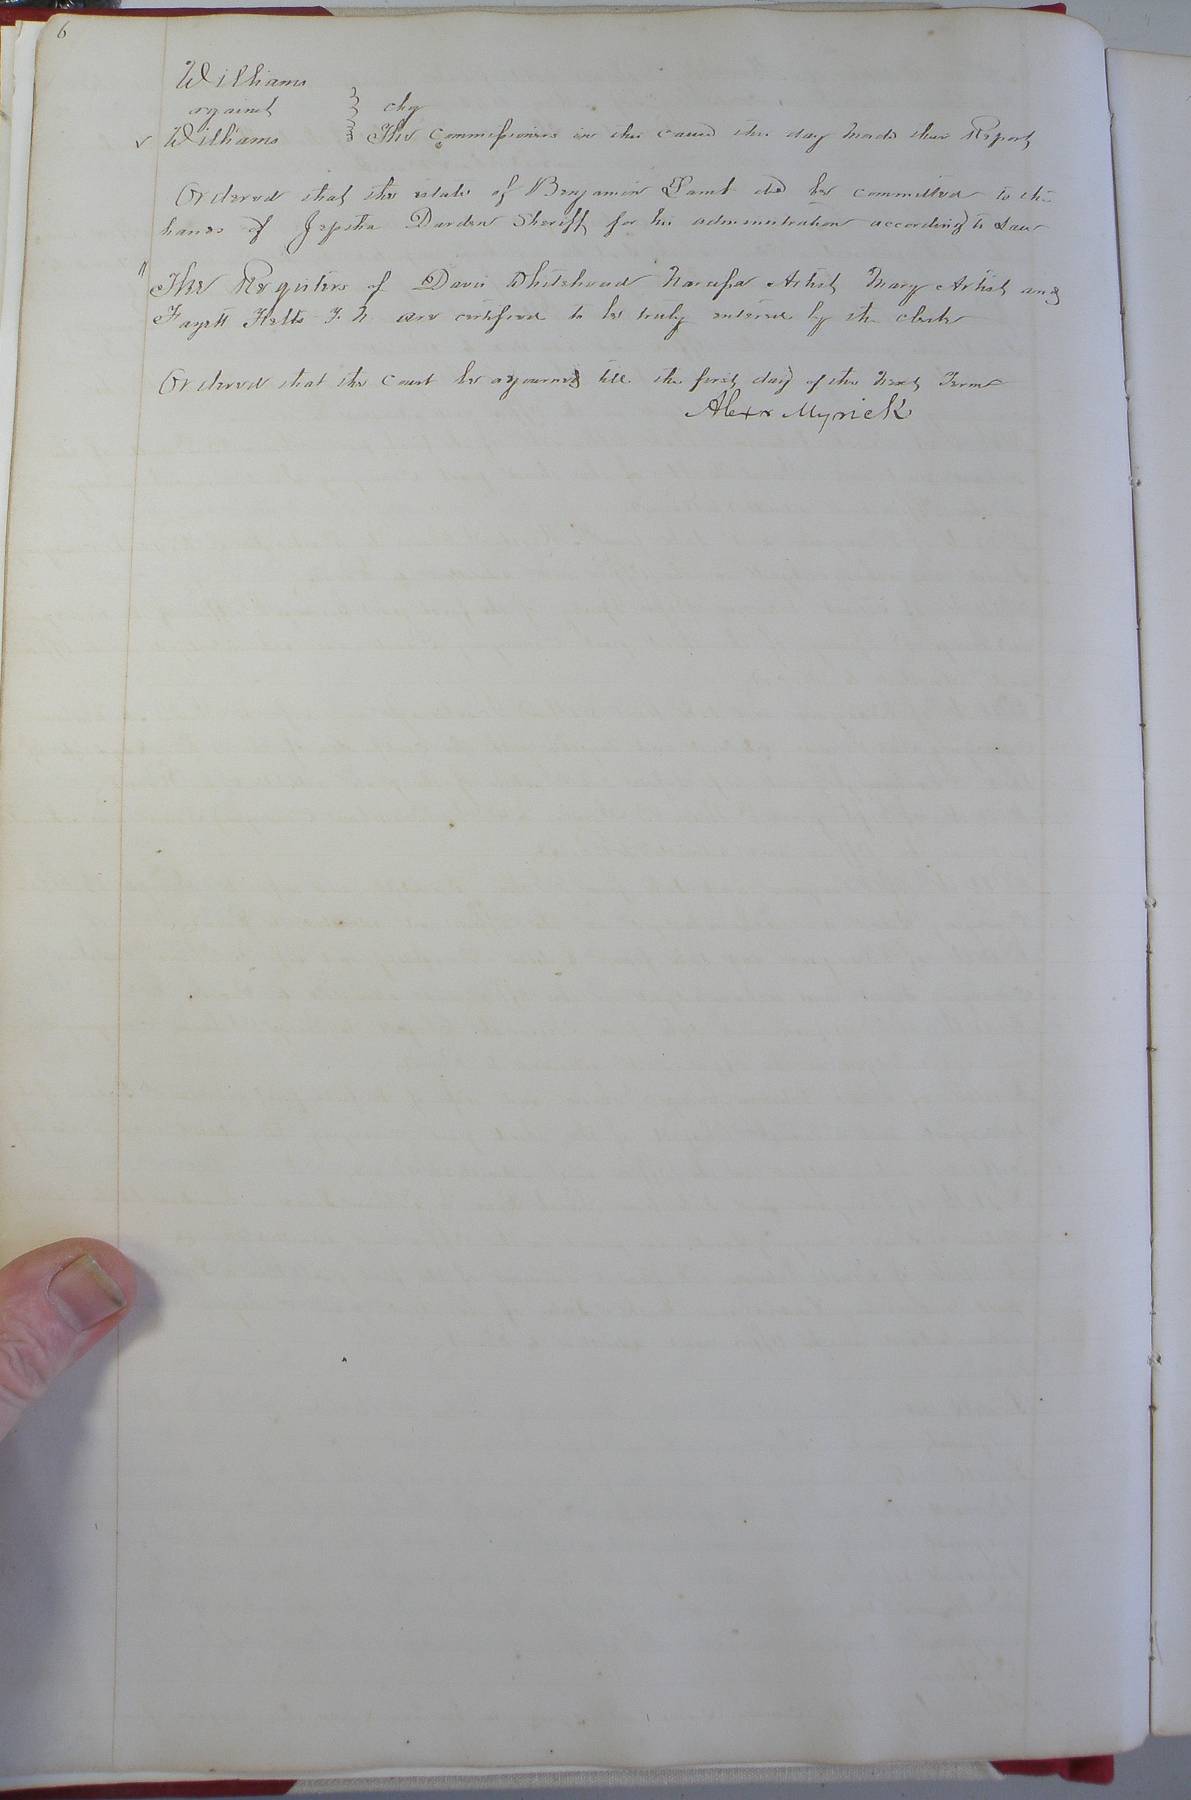 6
Williams
against } chy
✓ Williams } The Commissioners in this cause this day made their Report
Ordered that the estate of Benjamin Lamb decd be committed to the
hands of Jeptha Darden Sheriff for his administration according to Law
" The Registers of Davis Whitehead Narcissa Artist Mary Artist and
Fayett Felts F. N. are certified to be truly entered by the clerk
Ordered that the Court be adjourned till the first day of the next Term
Alexr Myrick